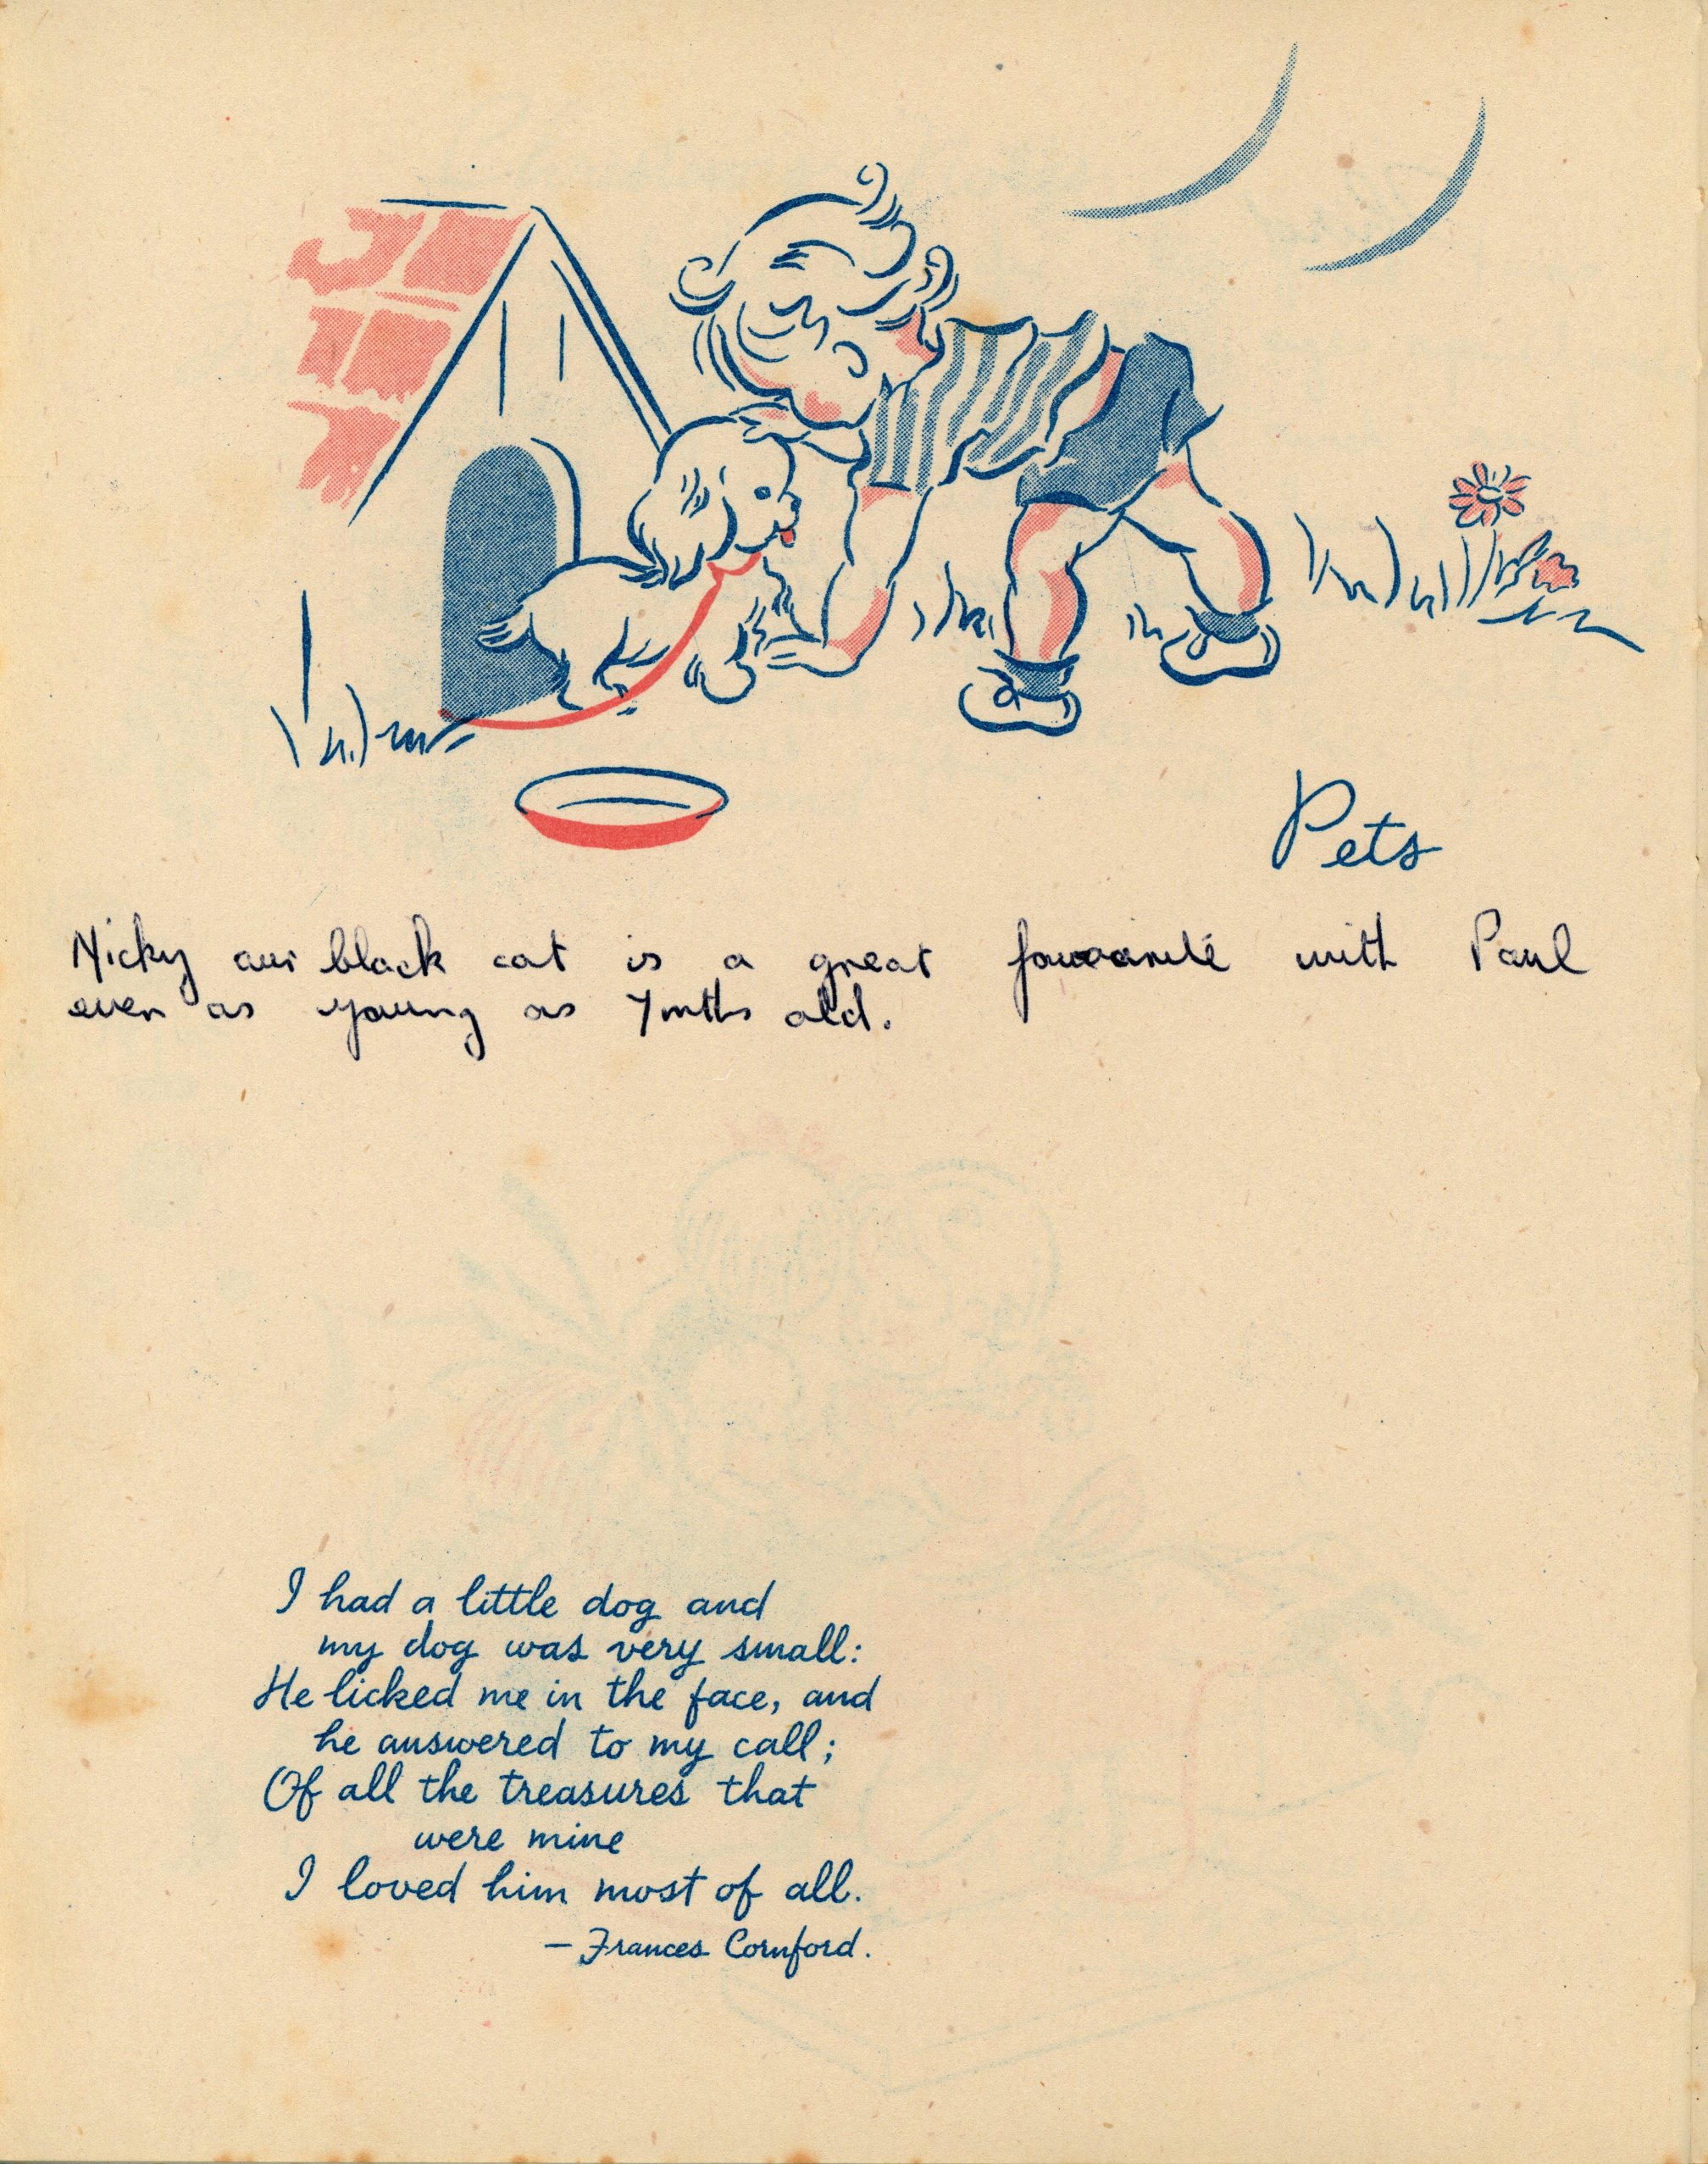 Pets
Nicky our black cat is a great favourite with Paul
even as young as 7 mths old.
I had a little dog and
my dog was very small:
He licked me in the face, and
he answered to my call;
Of all the treasures that
were mine
I loved him most of all.
— Frances Cornford.